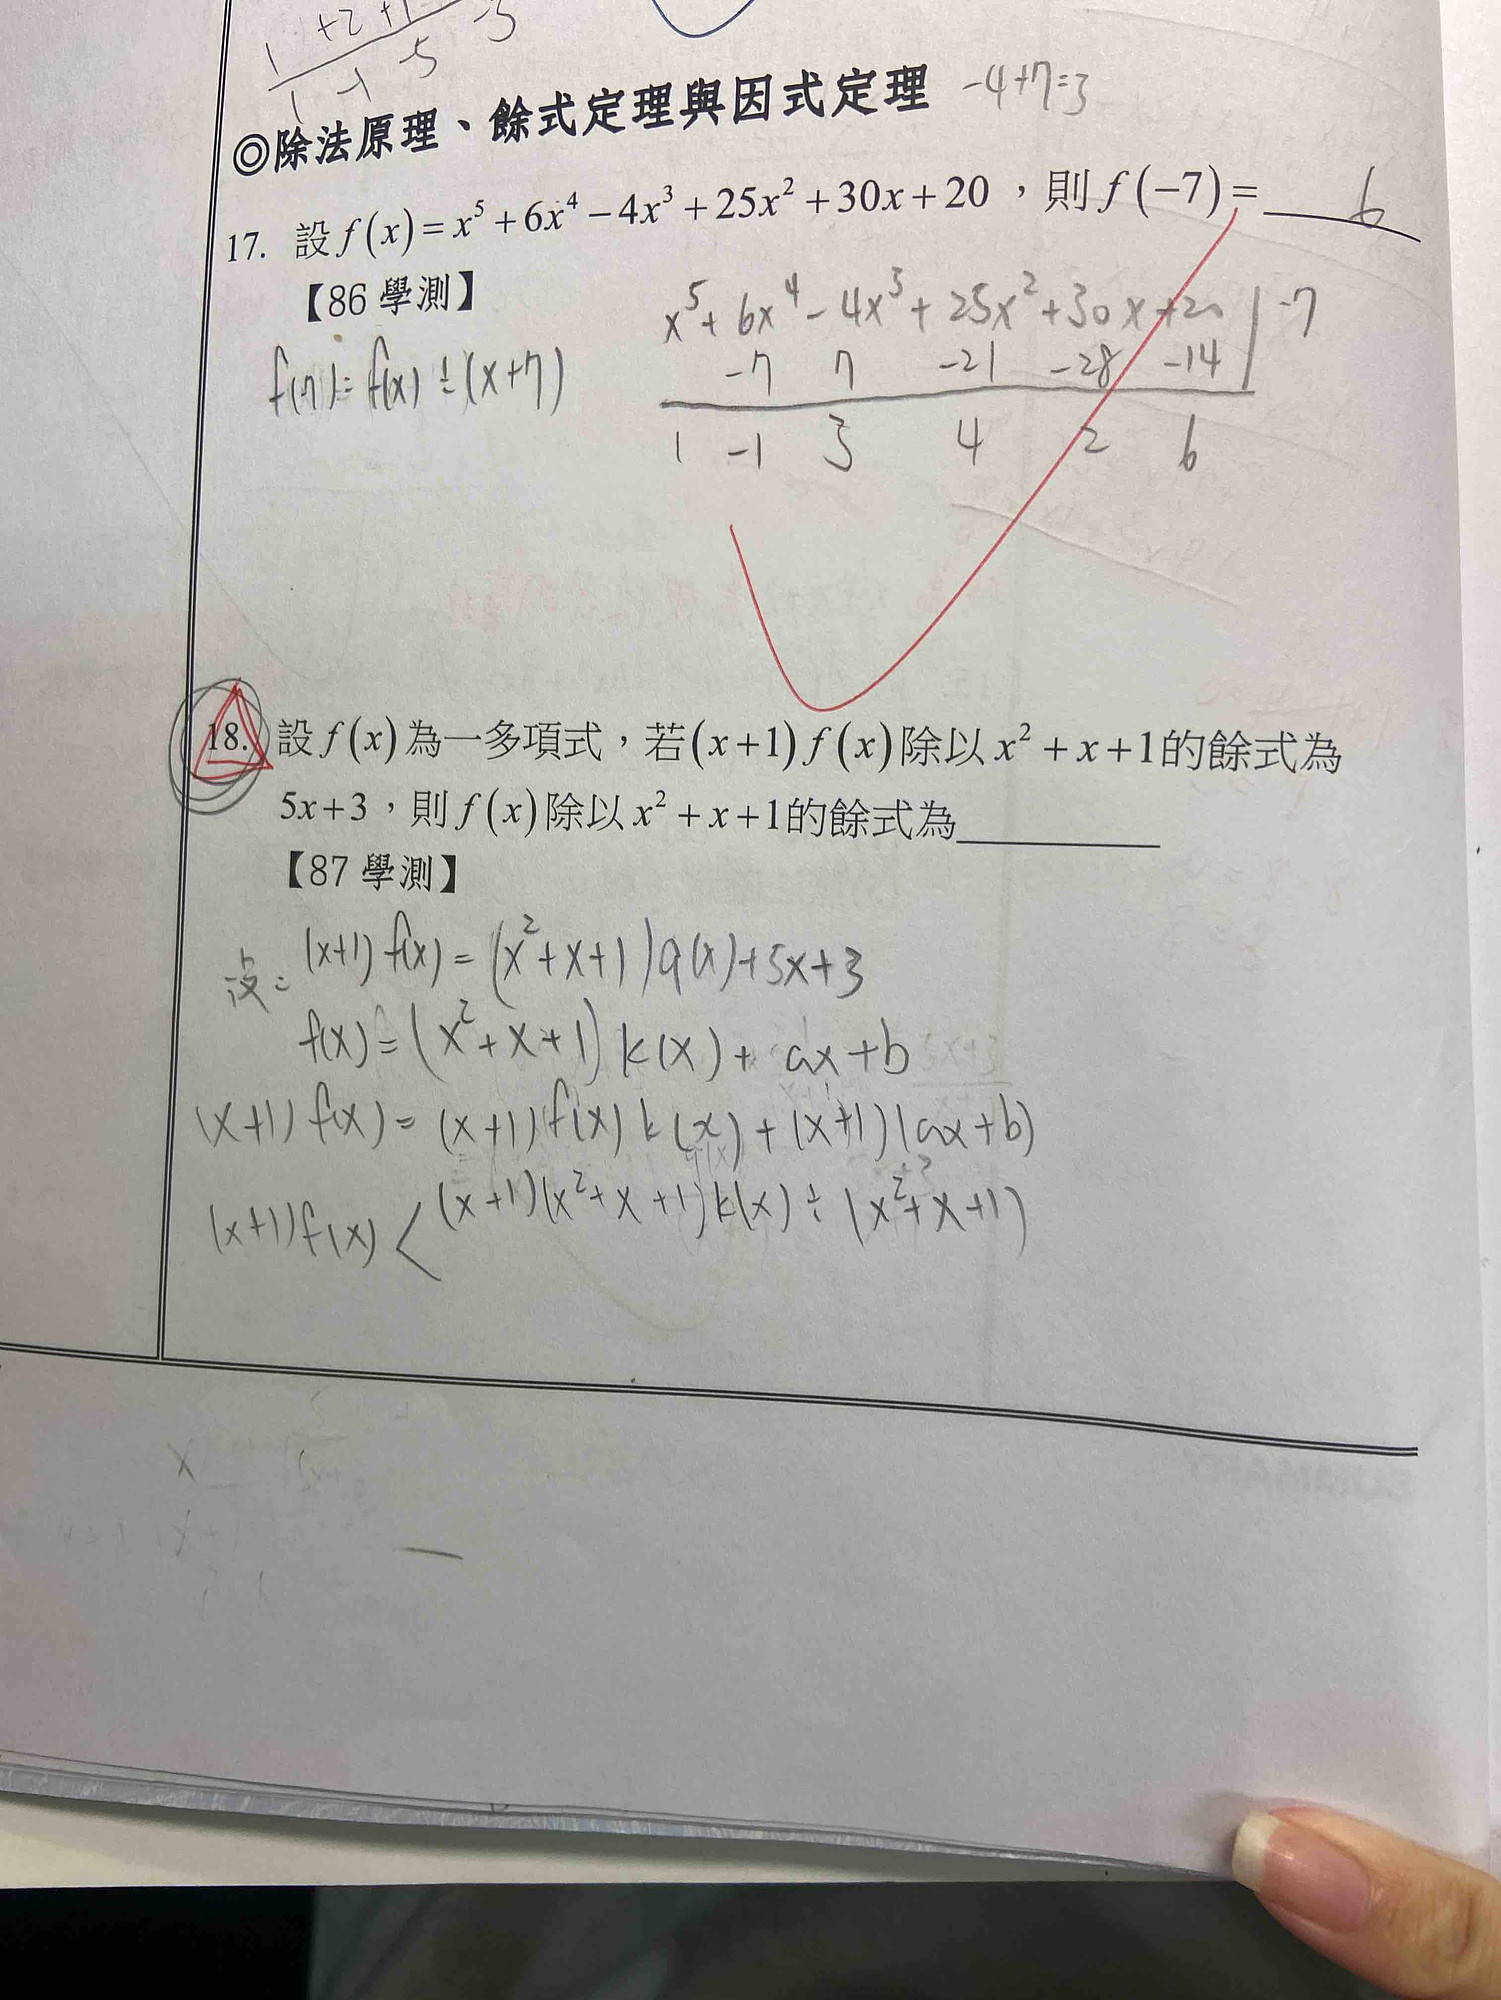 1 +2 +1
-3
1 -1 5
◎除法原理、餘式定理與因式定理 -4+7=3
17. 設 f(x)=x⁵+6x⁴−4x³+25x²+30x+20，則 f(−7)= 6
【86 學測】
x⁵+ 6x⁴ - 4x³ + 25x² +30x +20 -7
-7 7 -21 -28 -14
f(-7)= f(x) ÷ (x+7)
1 -1 3 4 2 6
18. 設 f(x) 為一多項式，若 (x+1)f(x) 除以 x²+x+1 的餘式為
5x+3，則 f(x) 除以 x²+x+1 的餘式為
【87 學測】
設: (x+1) f(x) = (x²+x+1)q(x)+5x+3
f(x)=(x²+x+1) k(x)+ ax+b
(x+1) f(x) = (x+1) f(x) k(x) + (x+1)(ax+b)
(x+1)f(x) < (x+1)(x²+x+1)k(x) ÷ (x²+x+1)